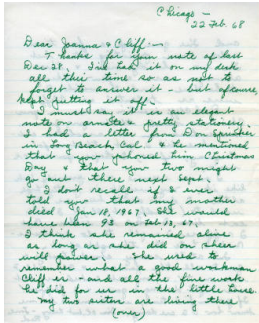 Chicago -
22 Feb. 68
Dear Joanna & Cliff: -
Thanks for your note of last
Dec 28. I've had it on my desk
all this time so as not to
forget to answer it - but of course,
kept putting it off.
I must say it is an elegant
note on ornate & pretty stationery.
I had a letter from Don
in Long Beach, Cal. & he mentioned
that you phoned him Christmas
Day & that you two might
go out there next Sept.
I don't recall if I ever
told you that my mother
died Jan 18, 1967. She would
have been 93 on Feb 13, 67.
I think she remained alive
as long as she did on sheer
will power. She used to
remember what a good workman
Cliff is - and all the fine work
he did for us in the little house.
My two sisters are living there
(over)